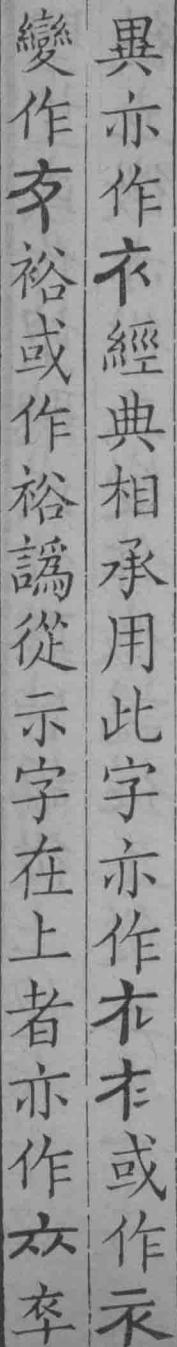 異亦作衣經典相承用此字亦作或作
變作裕或作裕譌從示字在上者亦作卒